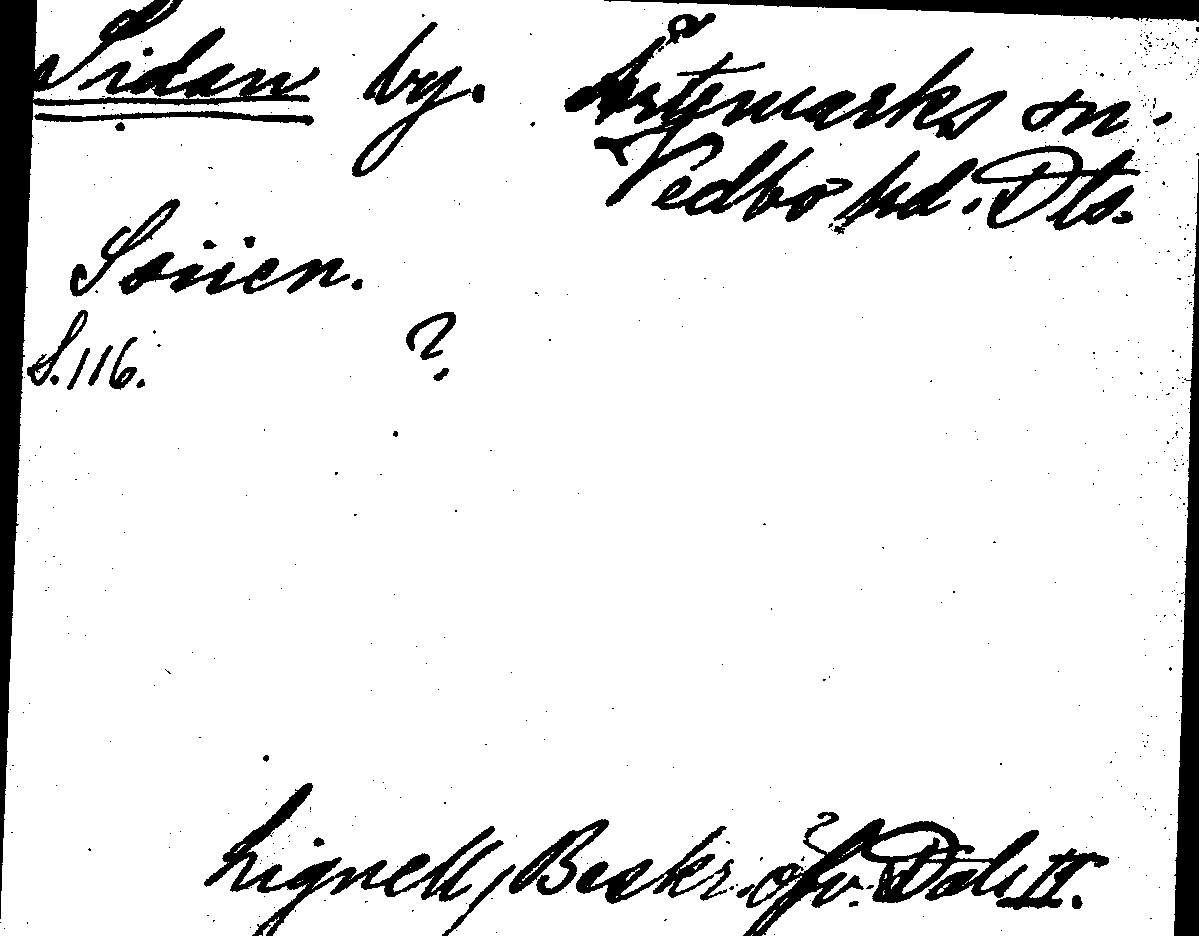 Sidan by. Årtemarks sn.
Vedbo hd. Dls.
Siien.
S. 116. ?
Lignell, Beskr. öfv. Dal II.